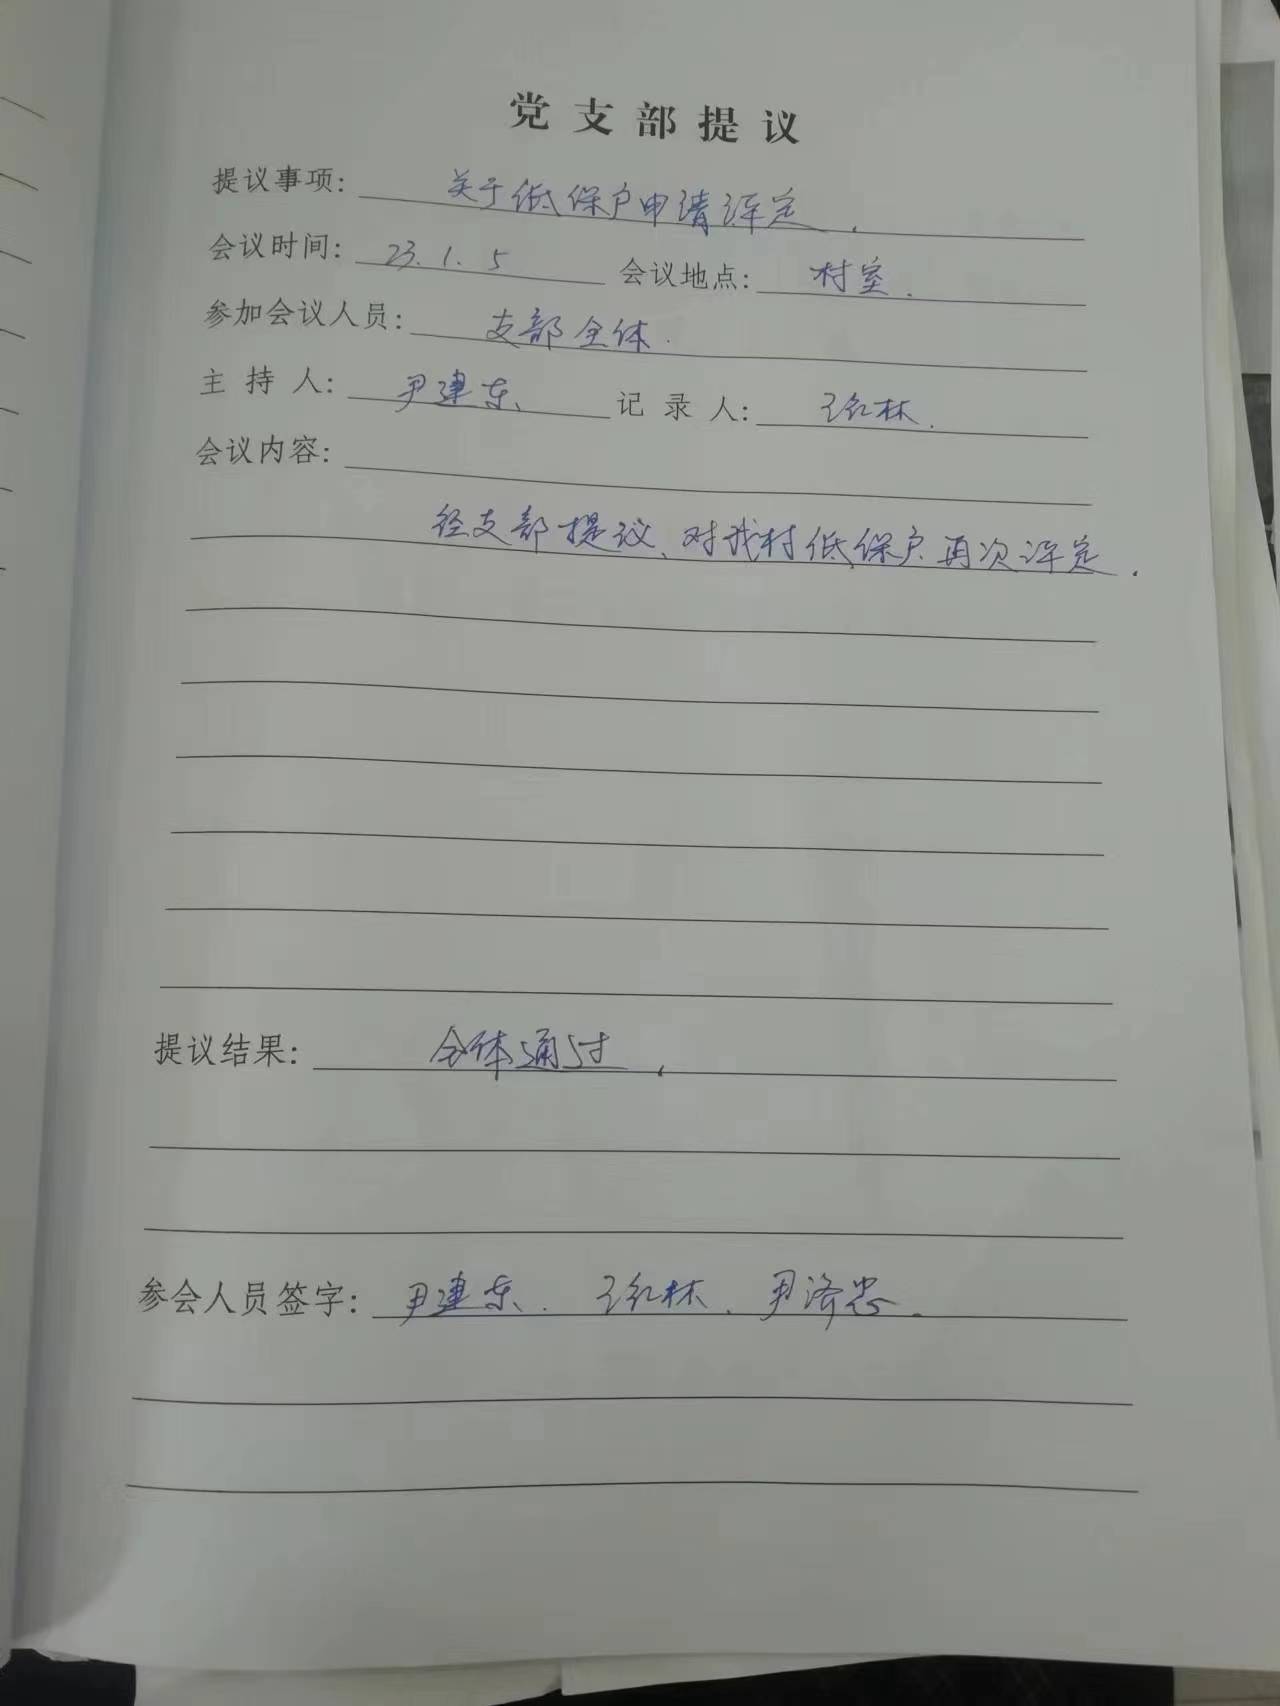 党支部提议
提议事项: 关于低保户申请评定.
会议时间: 23.1.5 会议地点: 村室.
参加会议人员: 支部全体.
主持人: 尹建东、 记录人: 王红林.
会议内容:
经支部提议、对我村低保户再次评定.
提议结果: 全体通过.
参会人员签字: 尹建东. 王红林. 尹济忠.